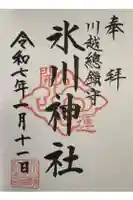 奉拝
川越總鎮守
氷川神社
令和七年一月十一日
開運